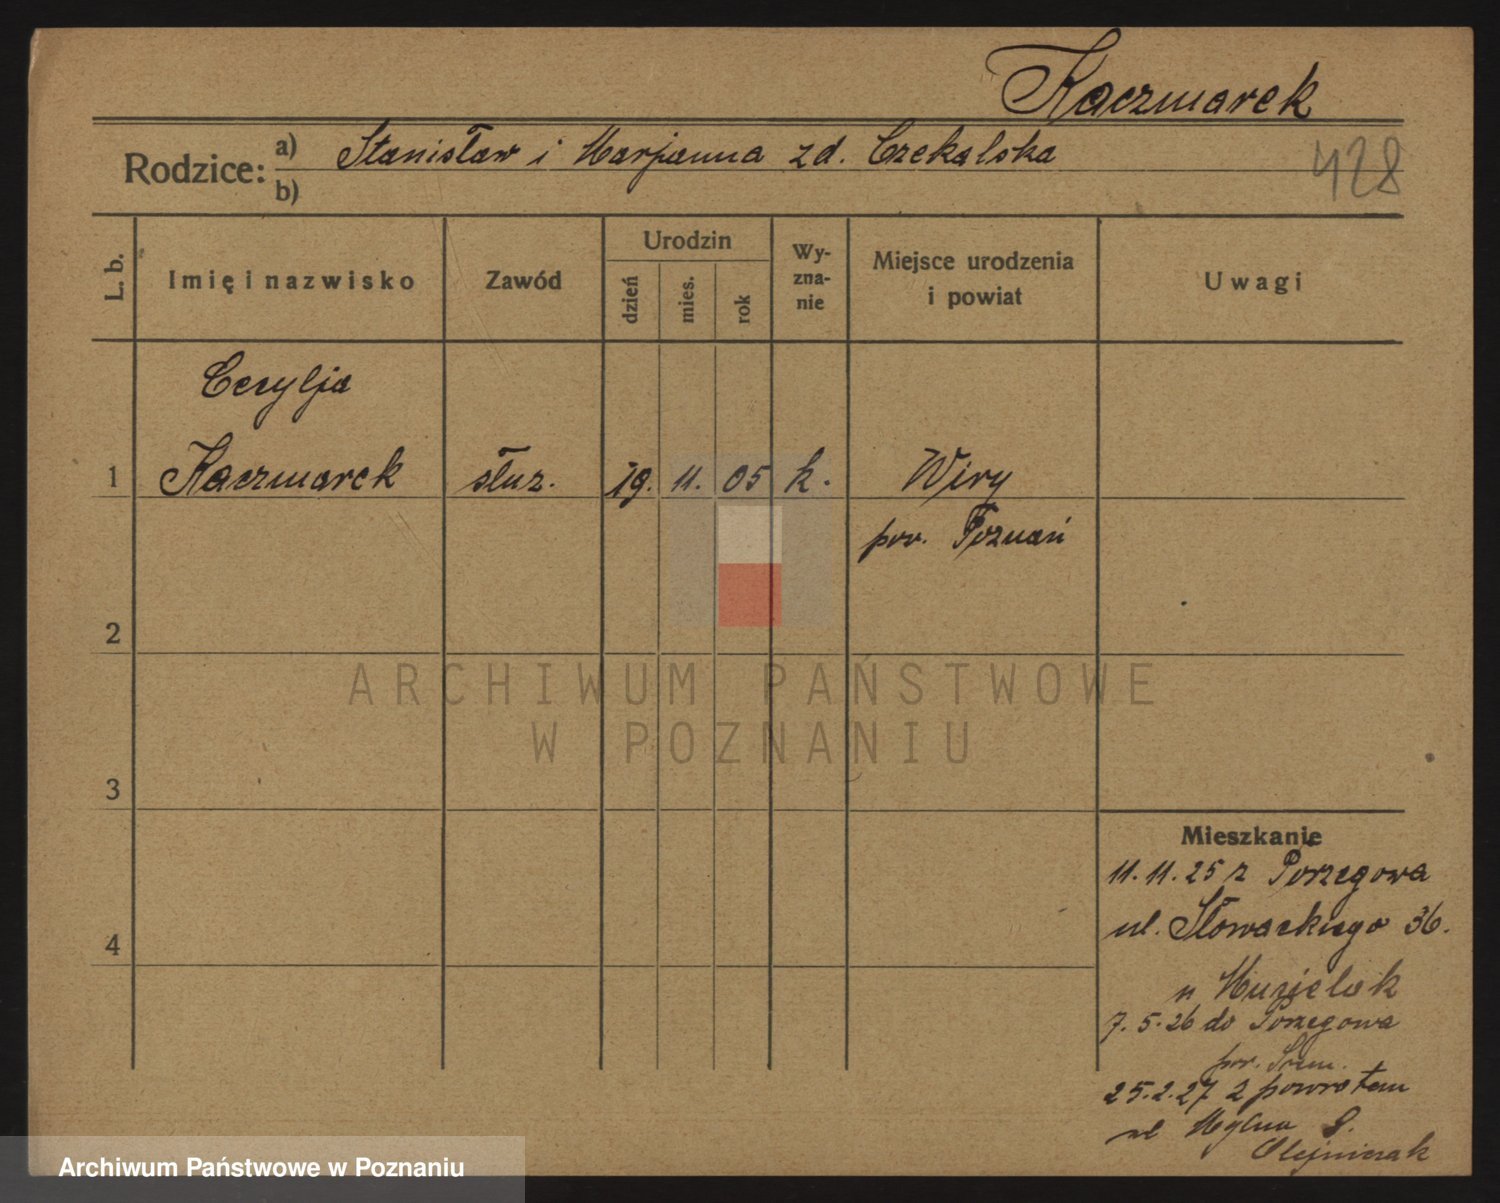 Kaczmarek
Rodzice: a) Stanisław i Marjanna zd. Czekalska
b)
428
L. b.
Imię i nazwisko
Zawód
Urodzin
dzień
mies.
rok
Wy-
zna-
nie
Miejsce urodzenia
i powiat
Uwagi
Cecylja
1 Kaczmarek służ. 19. 11. 05 k. Wiry
pow. Poznań
2
ARCHIWUM PAŃSTWOWE
W POZNANIU
3
Mieszkanie
11.11.25 z
ul. Słowackiego 36.
4
u Musielak
7.5.26 do
pow. Śrem.
25.2.27 z powrotem
ul Mylna
Olejniczak
Archiwum Państwowe w Poznaniu